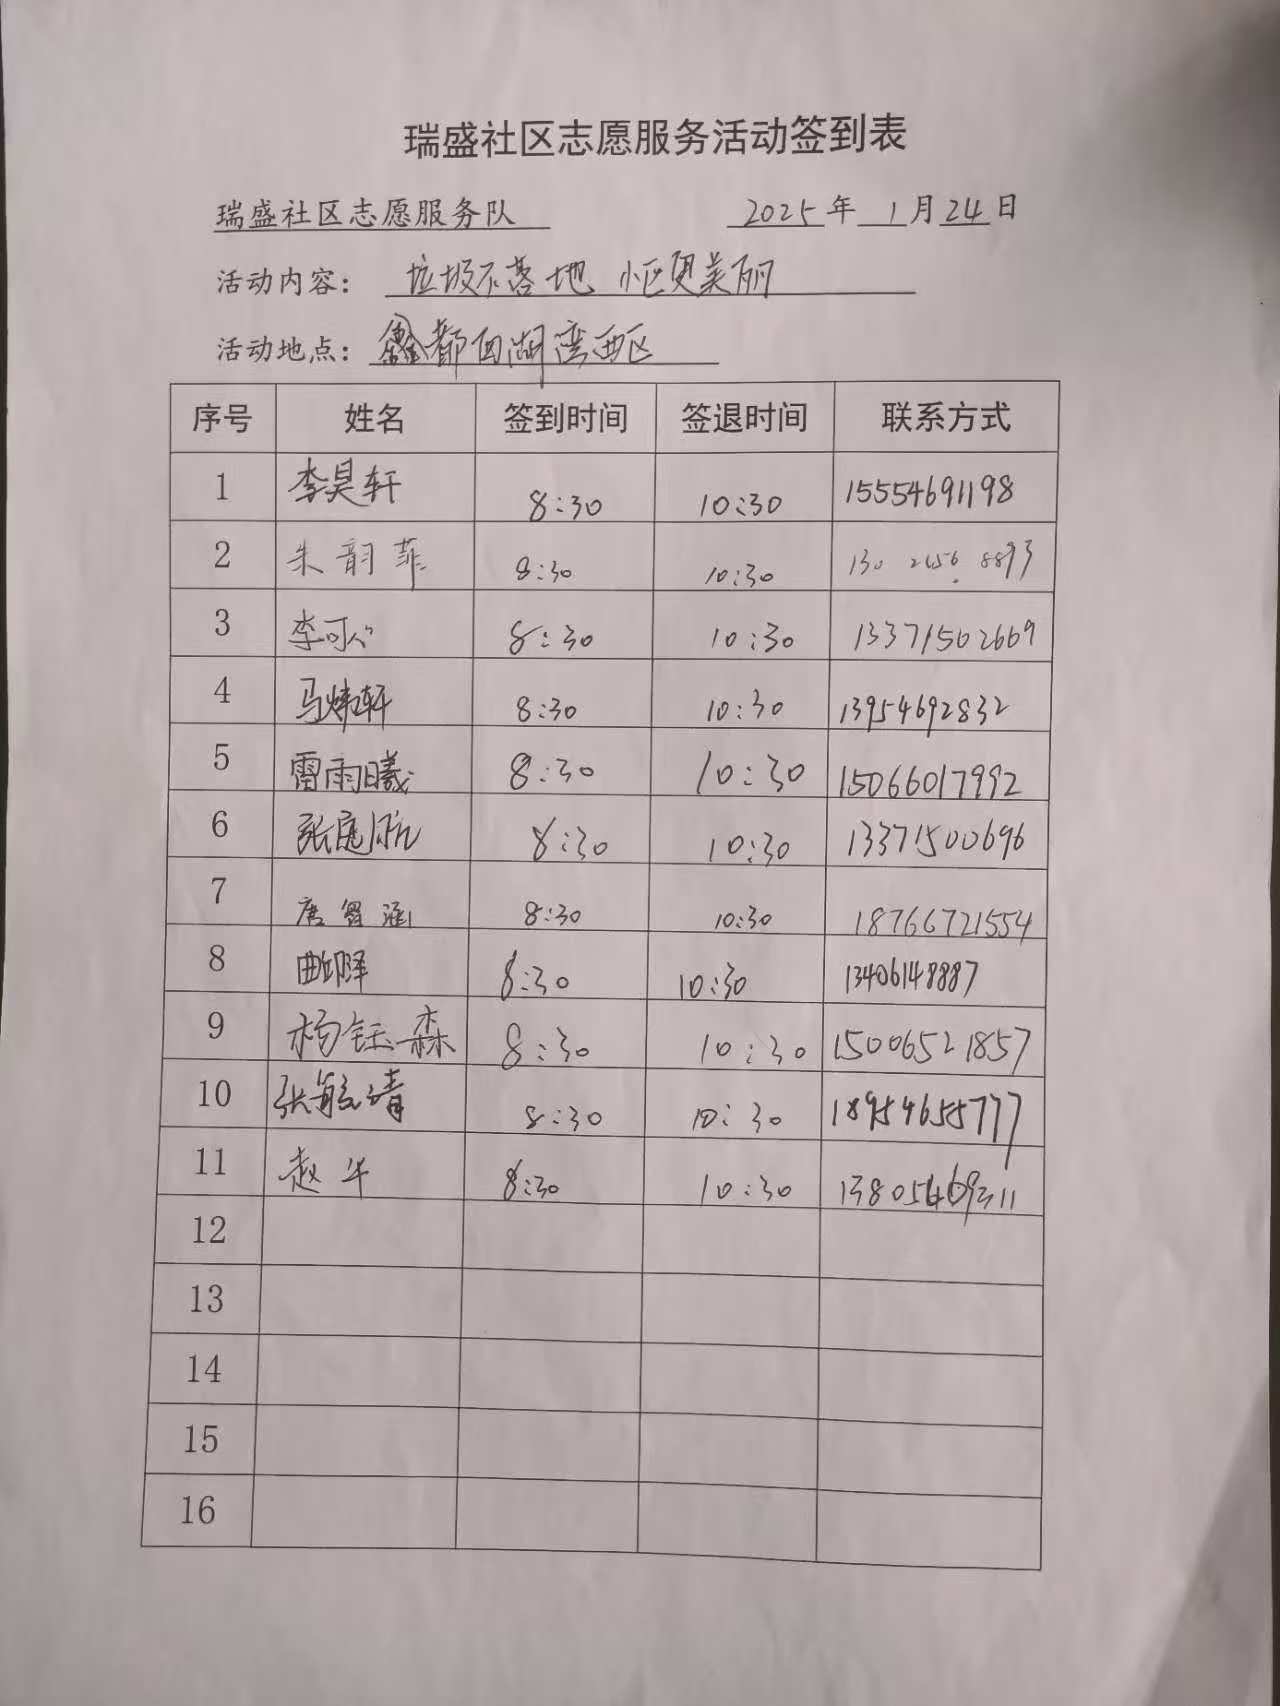 瑞盛社区志愿服务活动签到表
瑞盛社区志愿服务队 2025年 1月24日
活动内容： 垃圾不落地 小区更美丽
活动地点： 鑫都西湖湾西区
序号 姓名 签到时间 签退时间 联系方式
1 李昊轩 8:30 10:30 15554691198
2 朱韵菲 8:30 10:30 130 2656 8893
3 李可心 8:30 10:30 13371502669
4 马炜轩 8:30 10:30 13954692832
5 雷雨曦 8:30 10:30 15066017992
6 张庭航 8:30 10:30 13371500696
7 唐蜀涵 8:30 10:30 18766721554
8 8:30 10:30 13406148887
9 杨钰森 8:30 10:30 15006521857
10 张毓靖 8:30 10:30 18954655777
11 赵华 8:30 10:30 13805469311
12
13
14
15
16